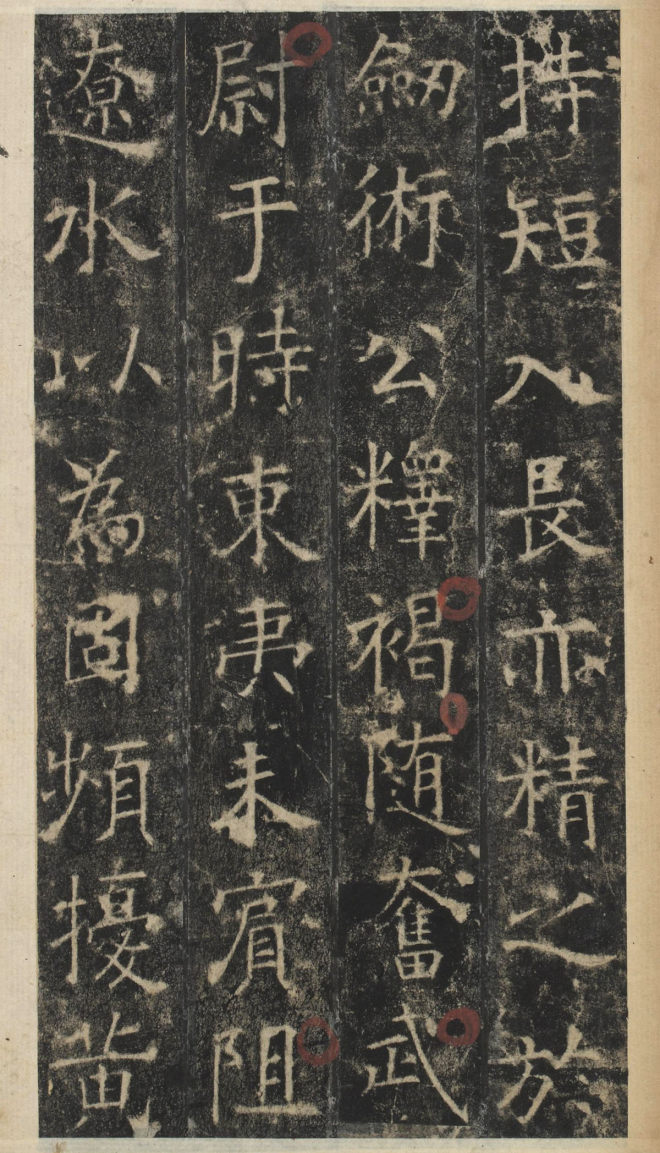 持短入長亦精之於
劒術公釋褐随奮武
尉于時東夷未賓阻
遼水以為固頻擾黄